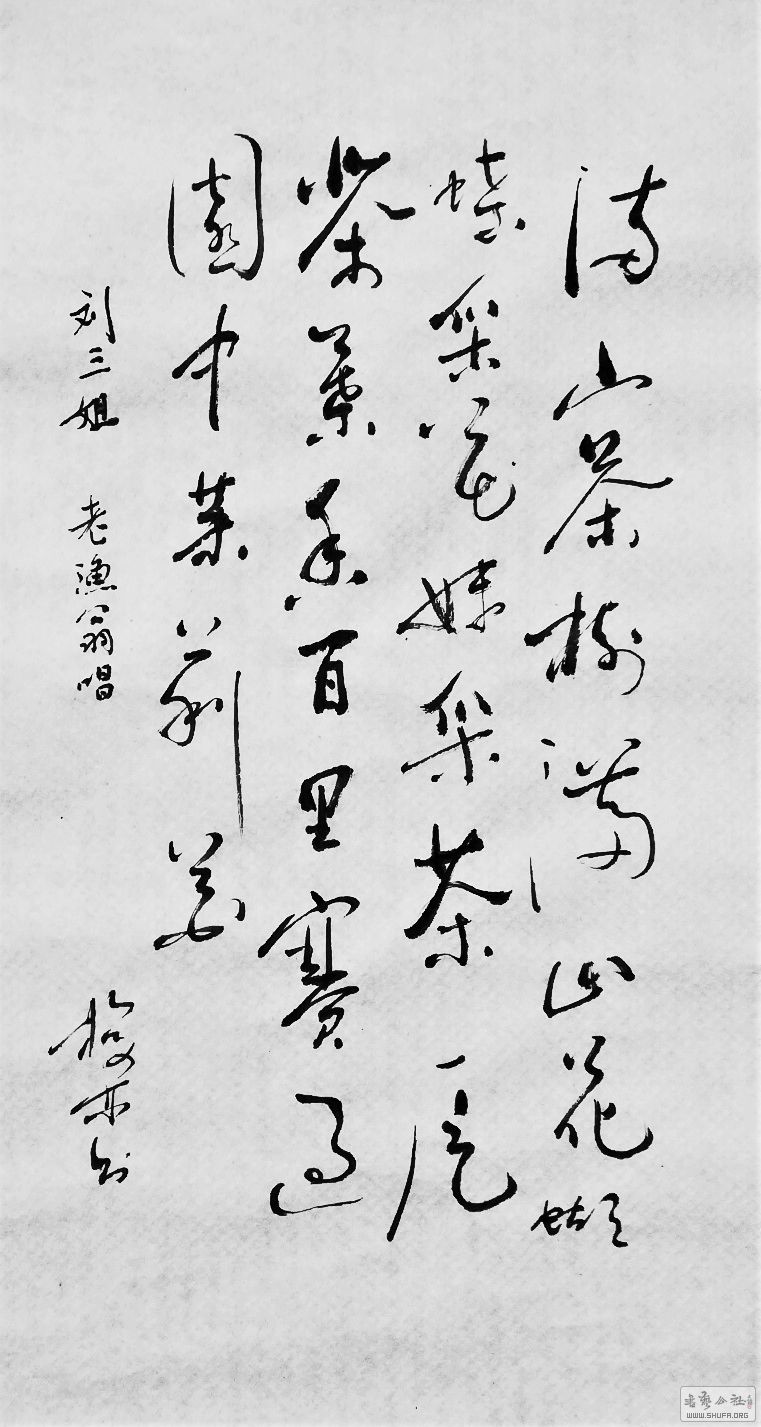 满山茶树满山花蝴
蝶采花妹采茶一
茶葉香百里賽過
園中茉莉花
刘三姐 老渔翁唱
亦书
书艺公社
WWW.SHUFA.ORG